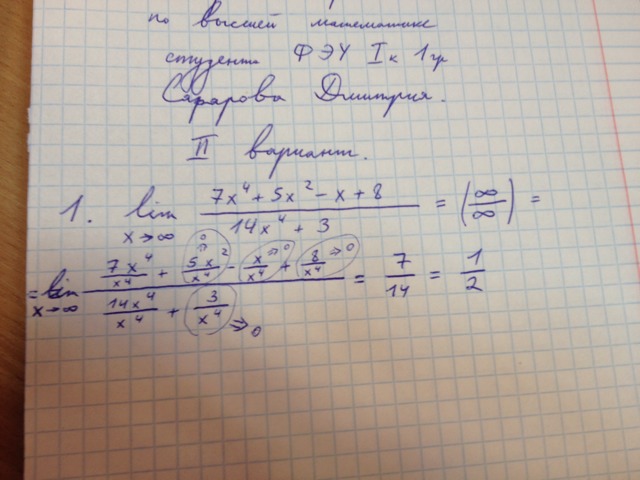 по высшей математике
студента ФЭУ I к 1 гр
Сафарова Дмитрия.
II вариант.
1. lim x→∞ (7x⁴ + 5x² - x + 8)/(14x⁴ + 3) = (∞/∞) =
= lim x→∞ (7x⁴/x⁴ + 5x²/x⁴ →0 - x/x⁴ →0 + 8/x⁴ →0)/(14x⁴/x⁴ + 3/x⁴ →0) = 7/14 = 1/2